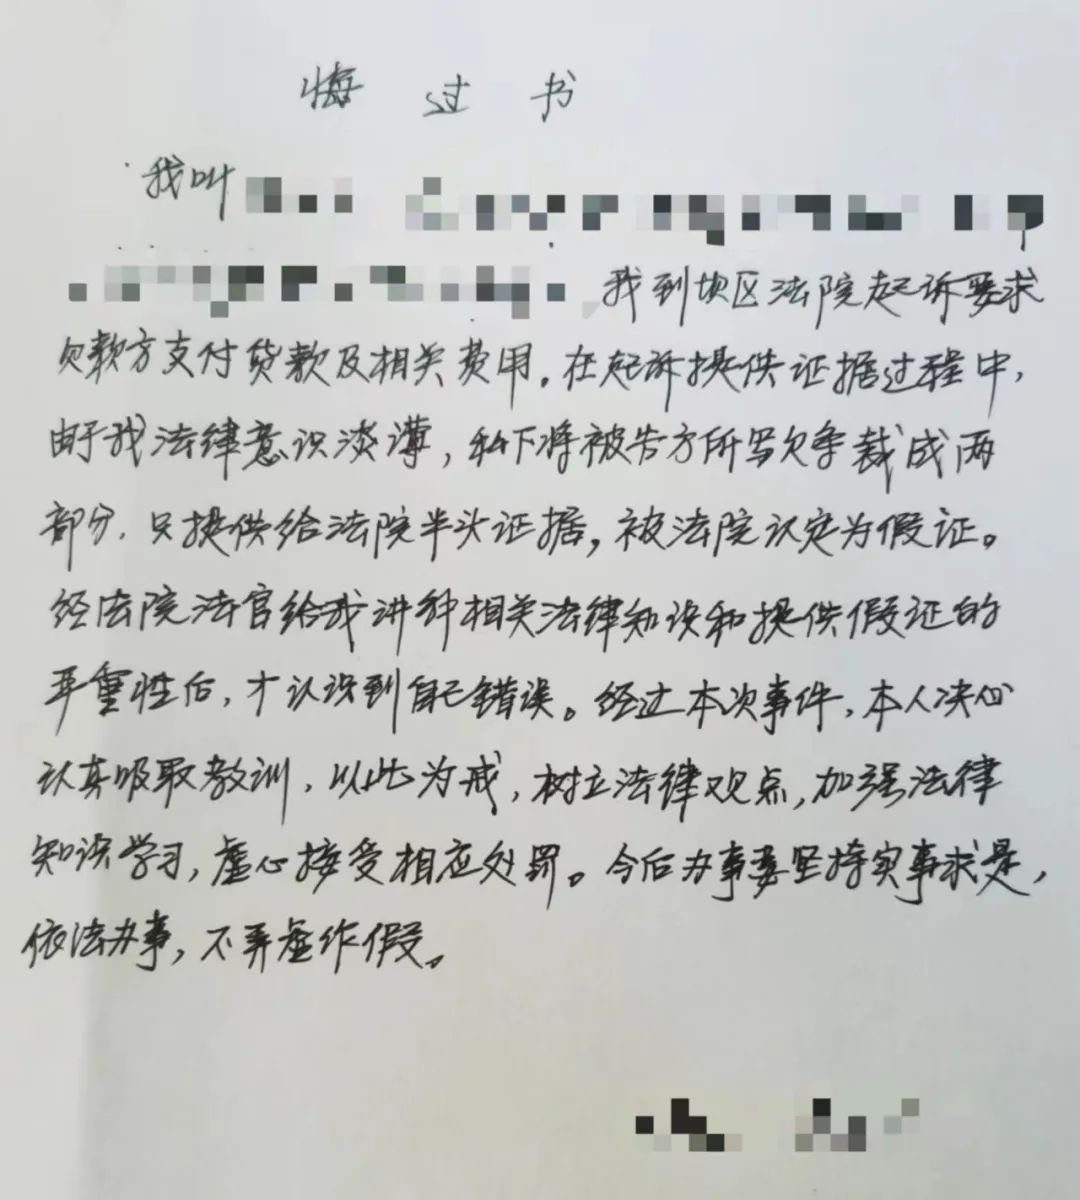 悔过书
我叫
我到坝区法院起诉要求
欠款方支付货款及相关费用。在起诉提供证据过程中,
由于我法律意识淡薄,私下将被告方所写欠条裁成两
部分,只提供给法院半头证据,被法院认定为假证。
经法院法官给我讲种相关法律知识和提供假证的
严重性后,才认识到自己错误。经过本次事件,本人决心
认真吸取教训,以此为戒,树立法律观点,加强法律
知识学习,虚心接受相应处罚。今后办事要坚持实事求是,
依法办事,不弄虚作假。